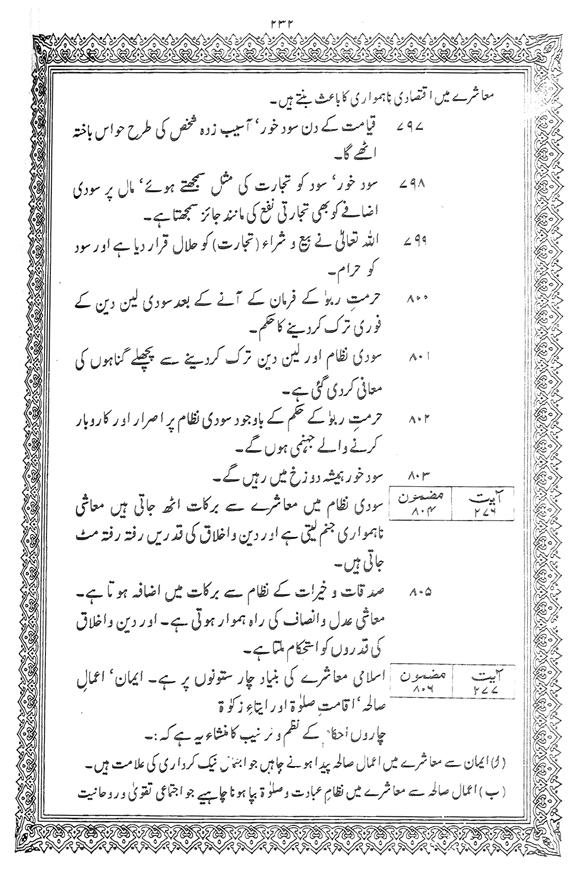 ۲۳۲
معاشرے میں اقتصادی ناہمواری کا باعث بنتے ہیں۔
۷۹۷ قیامت کے دن سود خور' آسیب زدہ شخص کی طرح حواس باختہ
اٹھے گا۔
۷۹۸ سود خور' سود کو تجارت کی مثل سمجھتے ہوئے' مال پر سودی
اضافے کو بھی تجارتی نفع کی مانند جائز سمجھتا ہے۔
۷۹۹ اللہ تعالیٰ نے بیع و شراء (تجارت) کو حلال قرار دیا ہے اور سود
کو حرام۔
۸۰۰ حرمتِ ربوٰ کے فرمان کے آنے کے بعد سودی لین دین کے
فوری ترک کر دینے کا حکم۔
۸۰۱ سودی نظام اور لین دین ترک کردینے سے پچھلے گناہوں کی
معافی کردی گئی ہے۔
۸۰۲ حرمتِ ربوٰ کے حکم کے باوجود سودی نظام پر اصرار اور کاروبار
کرنے والے جہنمی ہوں گے۔
۸۰۳ سود خور ہمیشہ دوزخ میں رہیں گے۔
آیت ۲۷۶ مضمون ۸۰۴ سودی نظام میں معاشرے سے برکات اٹھ جاتی ہیں معاشی
ناہمواری جنم لیتی ہے اور دین و اخلاق کی قدریں رفتہ رفتہ مٹ
جاتی ہیں۔
۸۰۵ صدقات و خیرات کے نظام سے برکات میں اضافہ ہوتا ہے۔
معاشی عدل و انصاف کی راہ ہموار ہوتی ہے۔ اور دین و اخلاق
کی قدروں کو استحکام ملتا ہے۔
آیت ۲۷۷ مضمون ۸۰۶ اسلامی معاشرے کی بنیاد چار ستونوں پر ہے۔ ایمان' اعمالِ
صالحہ' اقامتِ صلوٰۃ اور ایتاءِ زکوٰۃ
چاروں احکام کے نظم و ترتیب کا منشاء یہ ہے کہ :۔
(ا) ایمان سے معاشرے میں اعمال صالحہ پیدا ہونے چاہیں جو اجتماعی نیک کرداری کی علامت ہیں۔
(ب) اعمال صالحہ سے معاشرے میں نظامِ عبادت و صلوٰۃ بپا ہونا چاہیے جو اجتماعی تقویٰ و روحانیت